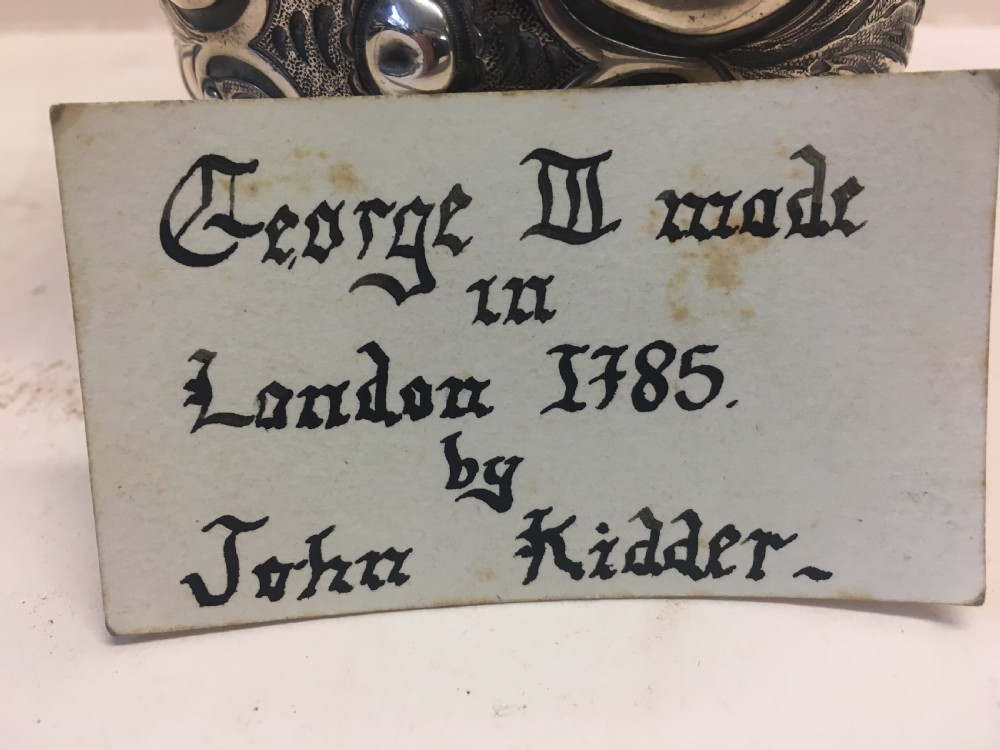 George III made
in
London 1785.
by
John Kidder_